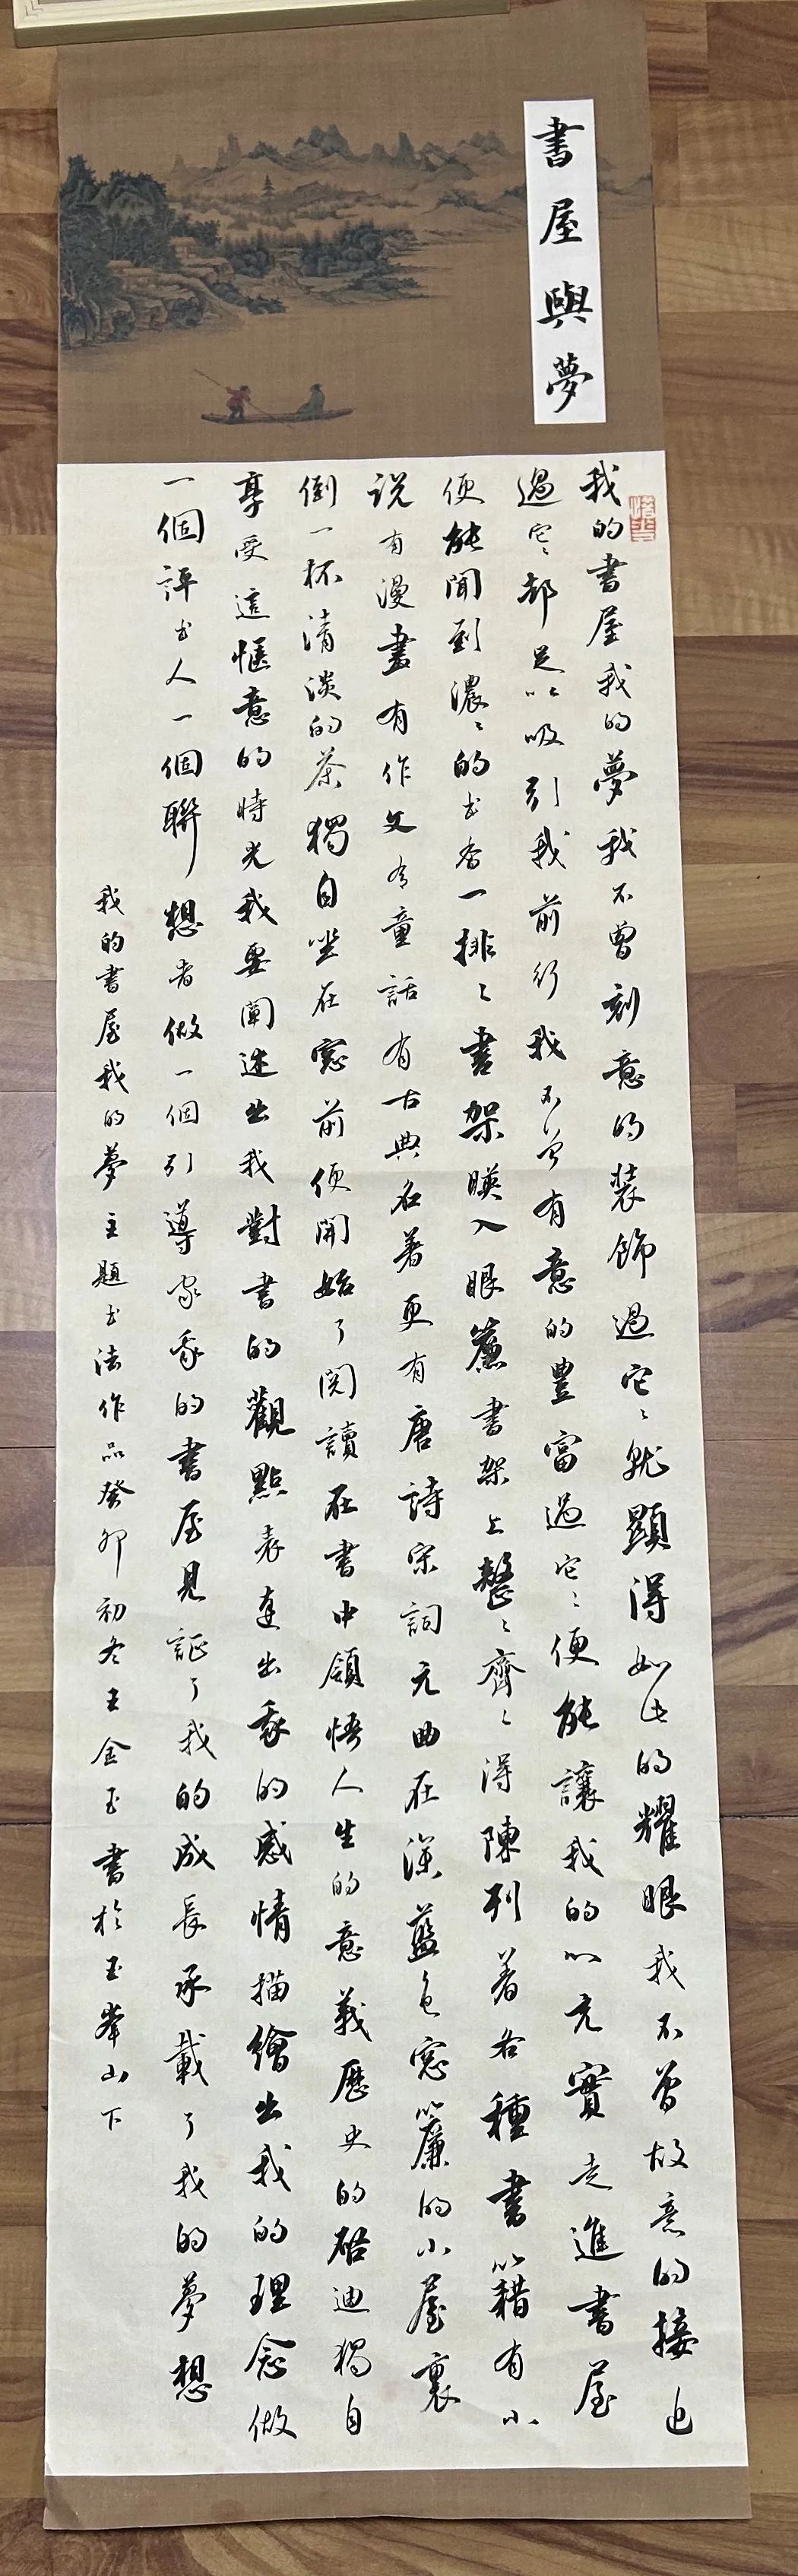 書屋與夢
我的書屋我的夢我不曾刻意的裝飾過它它就顯得如此的耀眼我不曾故意的接近
過它它都足以吸引我前行我不曾有意的豐富過它它便能讓我的心充實走進書屋
便能聞到濃濃的书香一排排書架映入眼簾書架上整整齊齊得陳列着各種書籍有小
说有漫畫有作文有童話有古典名著更有唐詩宋詞元曲在深藍色窓簾的小屋裏
倒一杯清淡的茶獨自坐在窓前便開始了閱讀在書中領悟人生的意義歷史的啓迪獨自
享受這愜意的時光我要闡述出我對書的觀點表達出我的感情描繪出我的理念做
一個評书人一個聯想者做一個引導家我的書屋見証了我的成長承載了我的夢想
我的書屋我的夢主題书法作品癸卯初冬王金玉書於玉峯山下